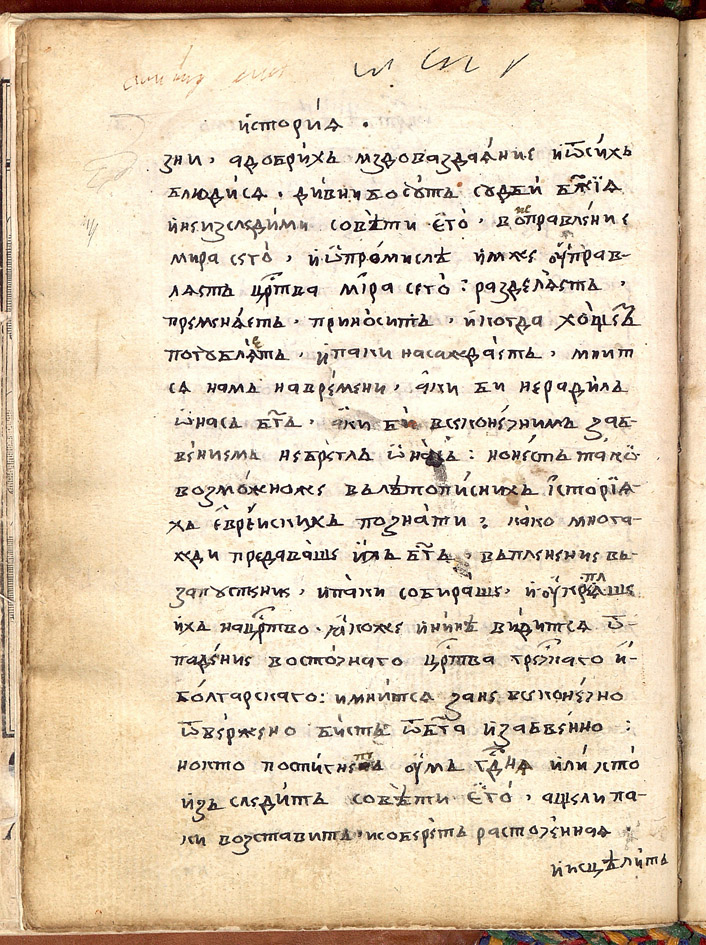 исторїѧ .
зни . адобрихъ мздовазданїе иѿсихъ
блюдисѧ . дивни босуть судби бж҃їѧ
инеизследими совѣти єгѡ . воправленїе
мира сего , иѿпромислѣ имже ѹправ-
лѧеть цр҃тва мира сего : разделѧеть ,
пременѧеть . приносить . икогда хощеть
погублѧеть . ипаки насаждаеть . мнит
сѧ намъ навремени . аки би нерадилъ
ѡнасъ бг҃ъ . аки би всеконечнимъ заб-
венїемъ небреглъ ѡнасъ : нонесть тако
возможноже вълѣтописнихъ історїѧ-
хъ єврейскихъ познати ? како многа-
жди предаваше ихъ бг҃ъ . въпленение въ
запустение . ипаки собираше . иѹкреплѧше
ихъ нацр҃тво . ꙗкоже ининѣ видитсѧ ѿ-
падение восточнаго цр҃тва греческаго и-
болгарскаго : имнитсѧ зане всеконечно
ѿвержено бисть ѿбг҃а изабвенно :
нокто постигнеть ѹмъ гд҇нѧ или кто
изъ следить совѣти єго . ащели па-
ки возставить . исоберетъ расточеннаѧ .
иисцѣлить